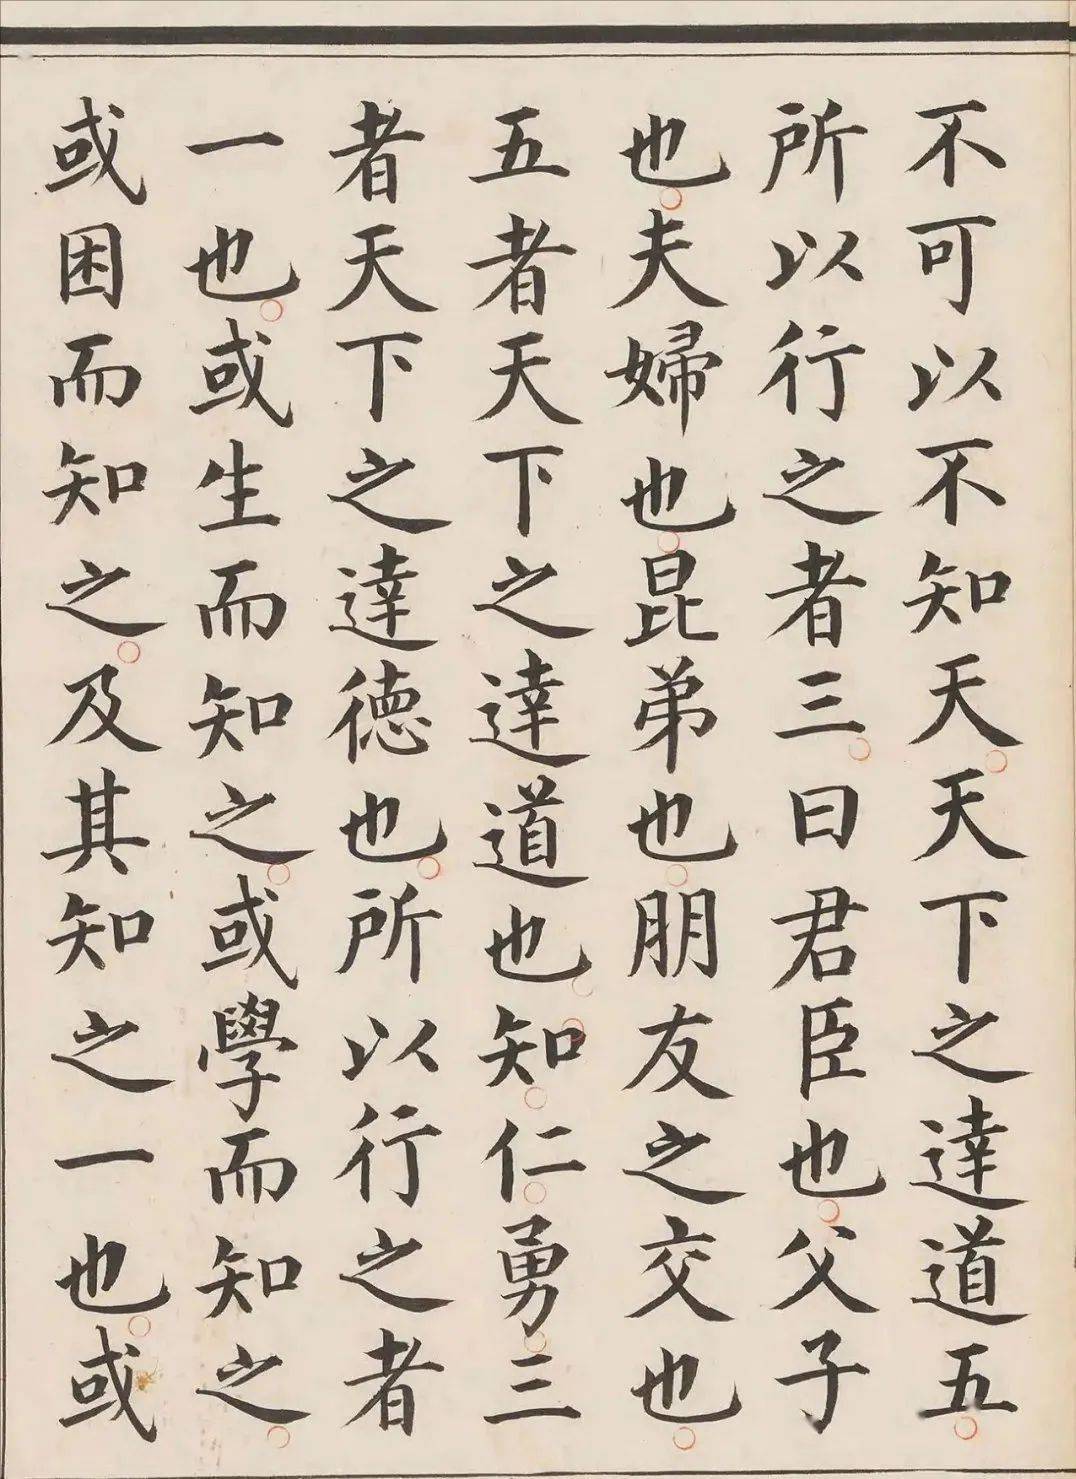 不可以不知天天下之達道五
所以行之者三曰君臣也父子
也夫婦也昆弟也朋友之交也
五者天下之達道也知仁勇三
者天下之達徳也所以行之者
一也或生而知之或學而知之
或困而知之及其知之一也或